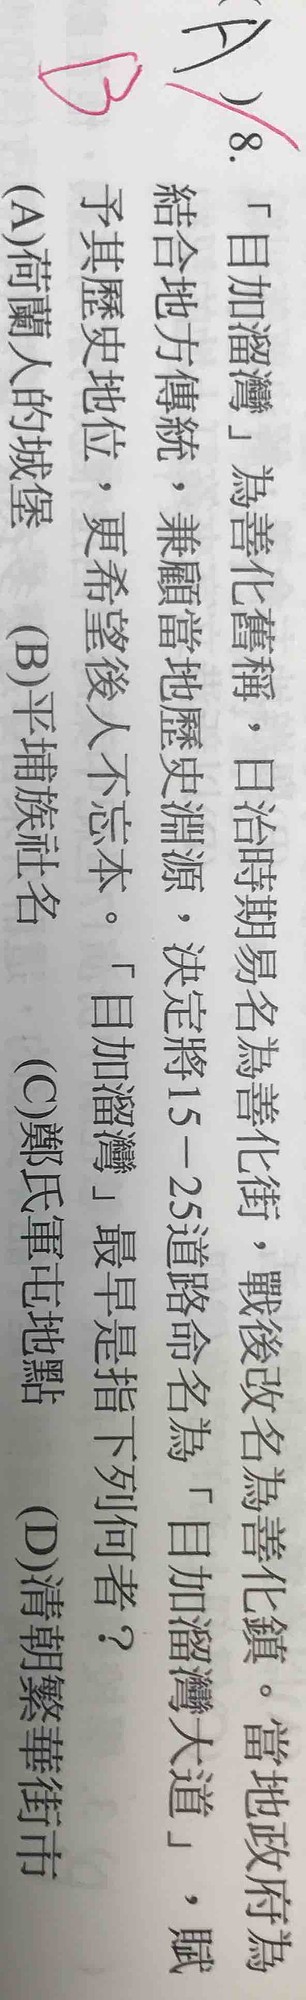 (A) 8.「目加溜灣」為善化舊稱，日治時期易名為善化街，戰後改名為善化鎮。當地政府為
結合地方傳統，兼顧當地歷史淵源，決定將15－25道路命名為「目加溜灣大道」，賦
予其歷史地位，更希望後人不忘本。「目加溜灣」最早是指下列何者？
B
(A)荷蘭人的城堡 (B)平埔族社名 (C)鄭氏軍屯地點 (D)清朝繁華街市